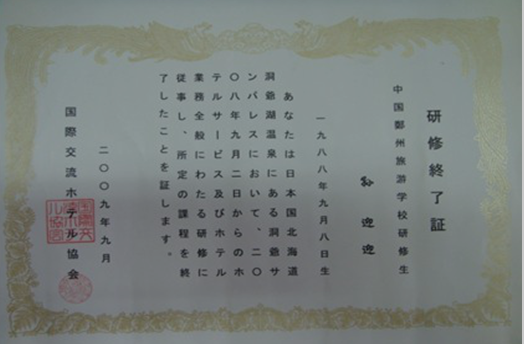 研修終了証
中国鄭州旅游学校研修生
孙迎迎
一九八八年九月八日生
あなたは日本国北海道
洞爺湖温泉にある洞爺サ
ンパレスにおいて、二〇
〇八年九月二日からのホ
テルサービス及びホテル
業務全般にわたる研修に
従事し、所定の課程を終
了したことを証します。
二〇〇九年九月
国際交流ホテル協会